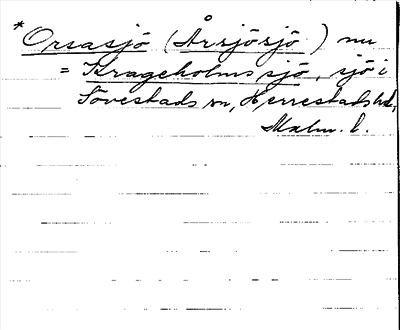 * Orsasjö (Årsjösjö) nu
= Krageholmssjö, sjö i
Sövestads sn, Herrestads hd,
Malm. l.